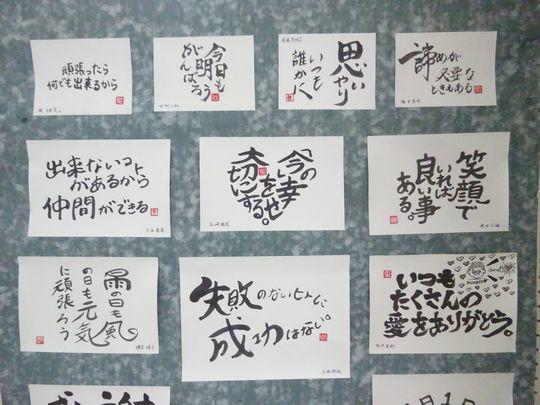 頑張ったら
何でも出来るから
今日も
明るく
がんばろう
思いやり
いつも
誰かへ
諦めが
必要な
ときもある
出来ないコト
があるから
仲間ができる
今の幸せ
を
大切にする。
笑顔で
いれば
良い事
ある。
雨の日も風
の日も元気
に頑張ろう
失敗のないヒトに
成功はない。
いつも
たくさんの
愛をありがとう。